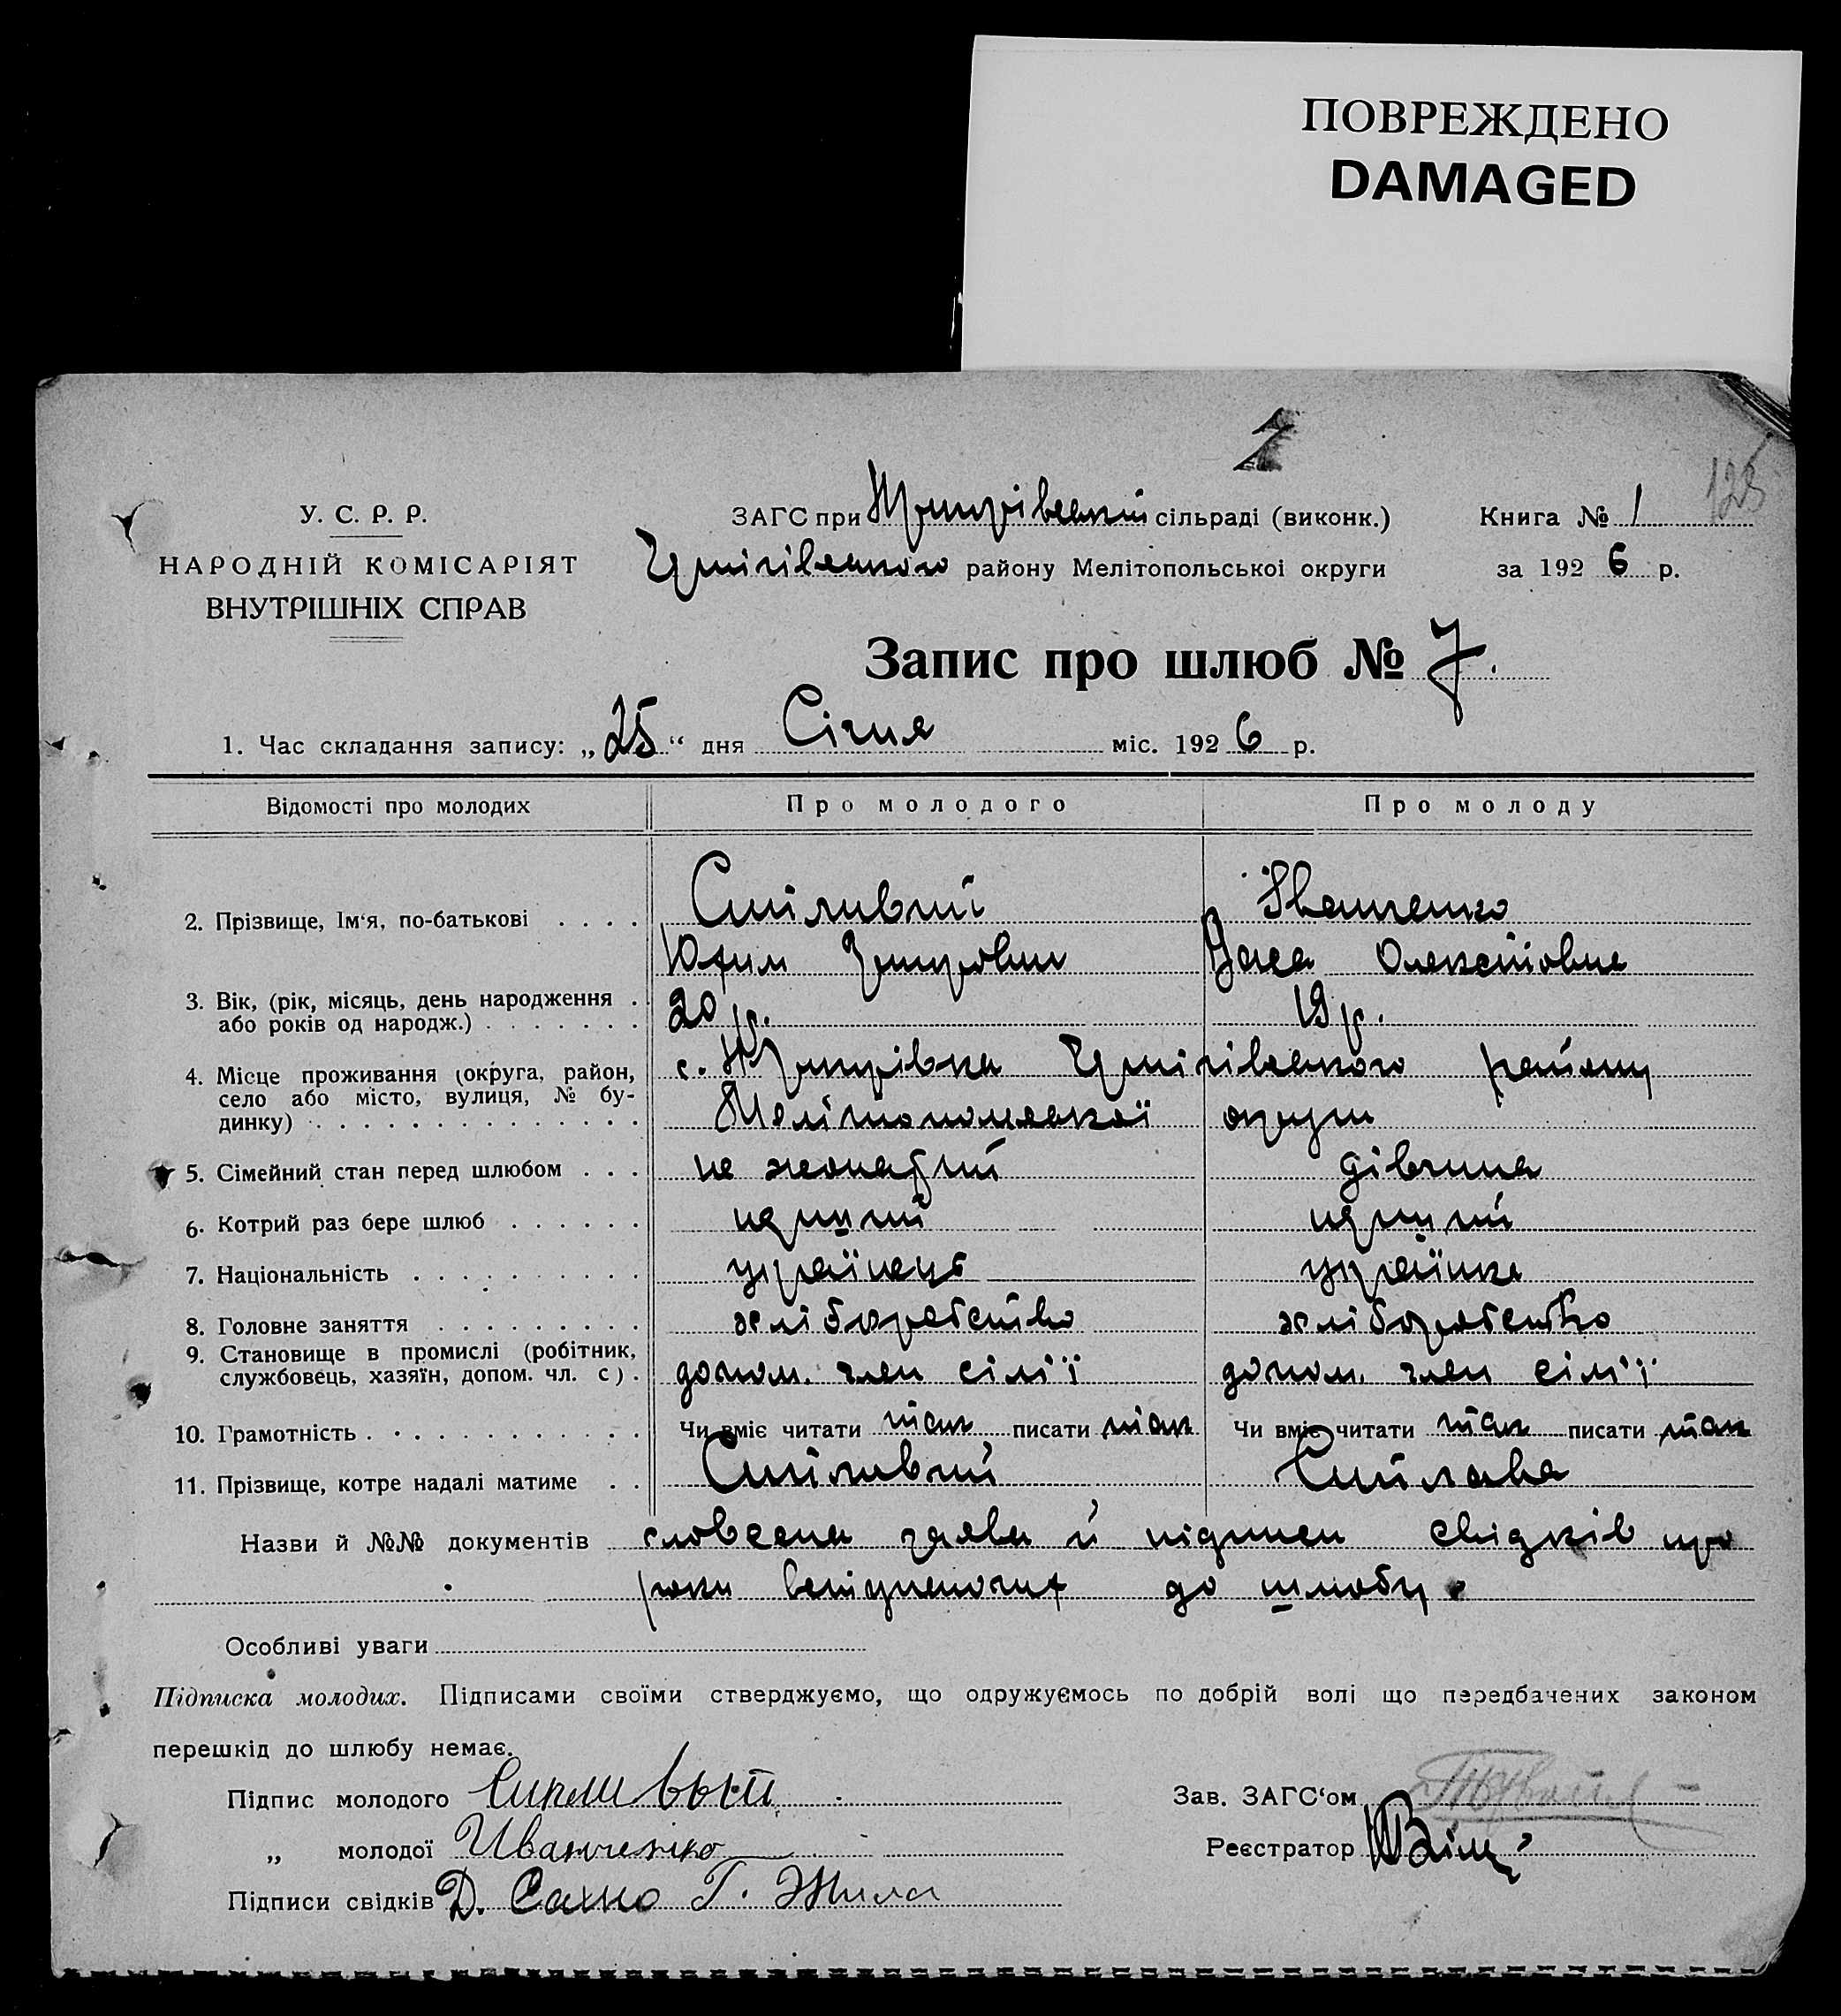 ПОВРЕЖДЕНО
DAMAGED
125
У. С. Р. Р.
НАРОДНІЙ КОМІСАРІЯТ
ВНУТРІШНІХ СПРАВ
ЗАГС при сільраді (виконк.)
району Мелітопольської округи
Книга № 1
за 192 6 р.
Запис про шлюб № 7.
1. Час складання запису: „25“ дня Січня міс. 192 6 р.
Відомості про молодих Про молодого Про молоду
2. Прізвище, Ім‘я, по-батькові . . . . Іванченко
Юхим
3. Вік, (рік, місяць, день народження . 20 р. 19 р.
або років од народж.) . . . . . . .
4. Місце проживання (округа, район, с. району
село або місто, вулиця, № бу- Мелітопольської округи
динку) . . . . . . . . . . . . . .
5. Сімейний стан перед шлюбом . . . не жонатий дівчина
6. Котрий раз бере шлюб . . . . . . перший перший
7. Національність . . . . . . . . . . українець українка
8. Головне заняття . . . . . . . . . хліборобство хліборобство
9. Становище в промислі (робітник,
службовець, хазяїн, допом. чл. с) . допом. член сім'ї допом. член сім'ї
10. Грамотність . . . . . . . . . . . . Чи вміє читати так писати так Чи вміє читати так писати так
11. Прізвище, котре надалі матиме . .
Назви й №№ документів словесна заява й підписи свідків про
роки до шлюбу.
Особливі уваги
Підписка молодих. Підписами своїми стверджуємо, що одружуємось по добрій волі що передбачених законом
перешкід до шлюбу немає.
Підпис молодого
„ молодої Иванченко
Підписи свідків Д. Сахно Г. Жила
Зав. ЗАГС‘ом
Реєстратор